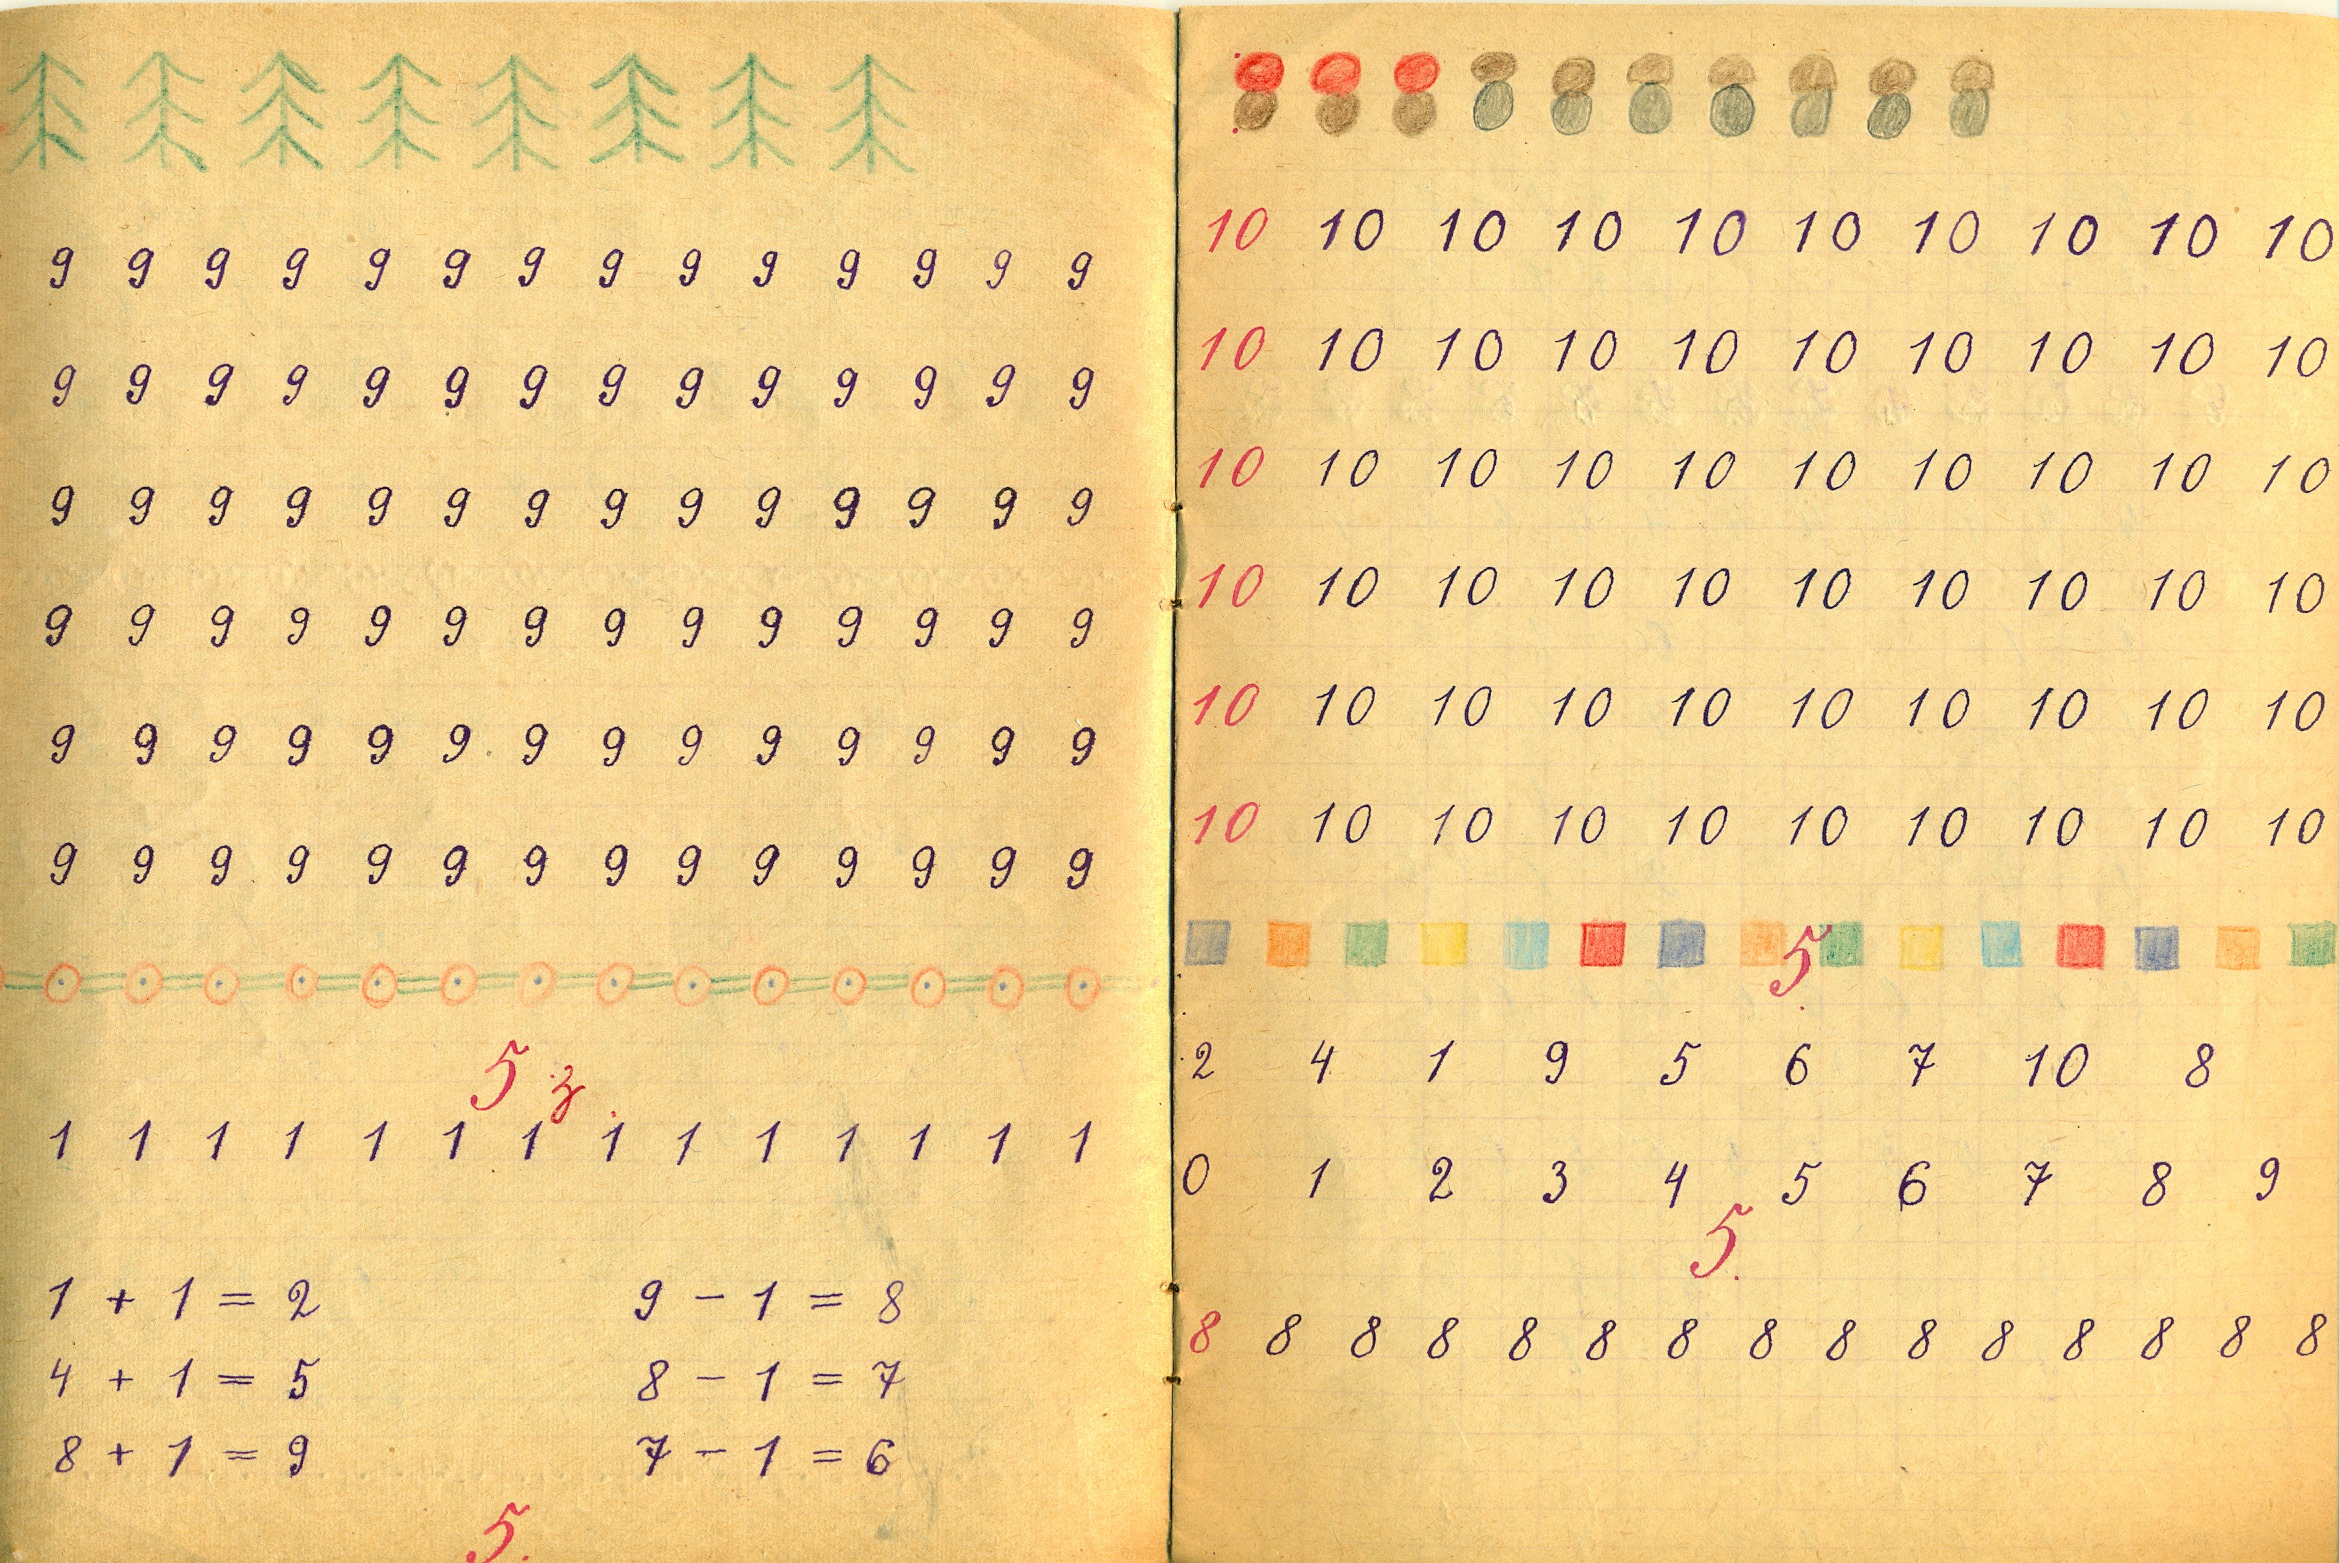 9 9 9 9 9 9 9 9 9 9 9 9 9 9
9 9 9 9 9 9 9 9 9 9 9 9 9 9
9 9 9 9 9 9 9 9 9 9 9 9 9 9
9 9 9 9 9 9 9 9 9 9 9 9 9 9
9 9 9 9 9 9 9 9 9 9 9 9 9 9
9 9 9 9 9 9 9 9 9 9 9 9 9 9
5 з.
1 1 1 1 1 1 1 1 1 1 1 1 1 1
1 + 1 = 2 9 - 1 = 8
4 + 1 = 5 8 - 1 = 7
8 + 1 = 9 7 - 1 = 6
5.
10 10 10 10 10 10 10 10 10 10
10 10 10 10 10 10 10 10 10 10
10 10 10 10 10 10 10 10 10 10
10 10 10 10 10 10 10 10 10 10
10 10 10 10 10 10 10 10 10 10
10 10 10 10 10 10 10 10 10 10
5.
2 4 1 9 5 6 7 10 8
0 1 2 3 4 5 6 7 8 9
5.
8 8 8 8 8 8 8 8 8 8 8 8 8 8 8